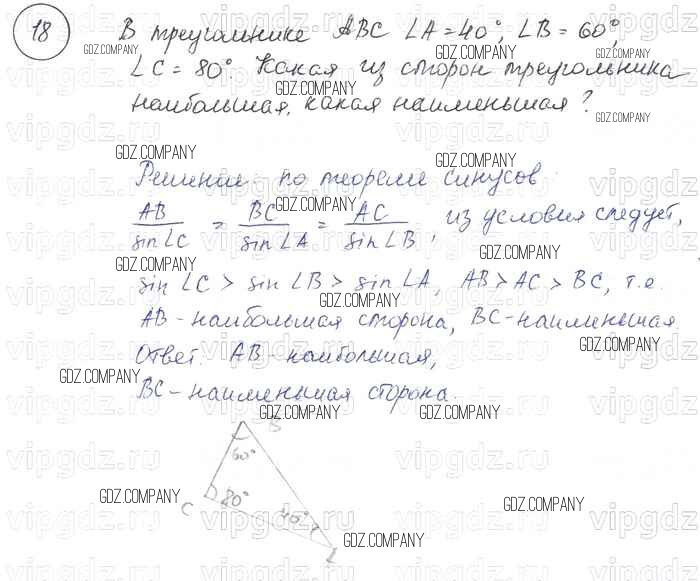 18 В треугольнике ABC ∠A = 40°, ∠B = 60°,
∠C = 80°. Какая из сторон треугольника
наибольшая, какая наименьшая?
Решение по теореме синусов
AB/sin∠C = BC/sin∠A = AC/sin∠B, из условия следует,
sin∠C > sin∠B > sin∠A, AB > AC > BC, т.е.
AB - наибольшая сторона, BC - наименьшая
Ответ. AB - наибольшая,
BC - наименьшая сторона.
B
60°
C 80° 40°
GDZ.COMPANY
GDZ.COMPANY
GDZ.COMPANY
GDZ.COMPANY
GDZ.COMPANY
GDZ.COMPANY
GDZ.COMPANY
GDZ.COMPANY
GDZ.COMPANY
GDZ.COMPANY
GDZ.COMPANY
GDZ.COMPANY
GDZ.COMPANY
GDZ.COMPANY
GDZ.COMPANY
GDZ.COMPANY
GDZ.COMPANY
vipgdz.ru